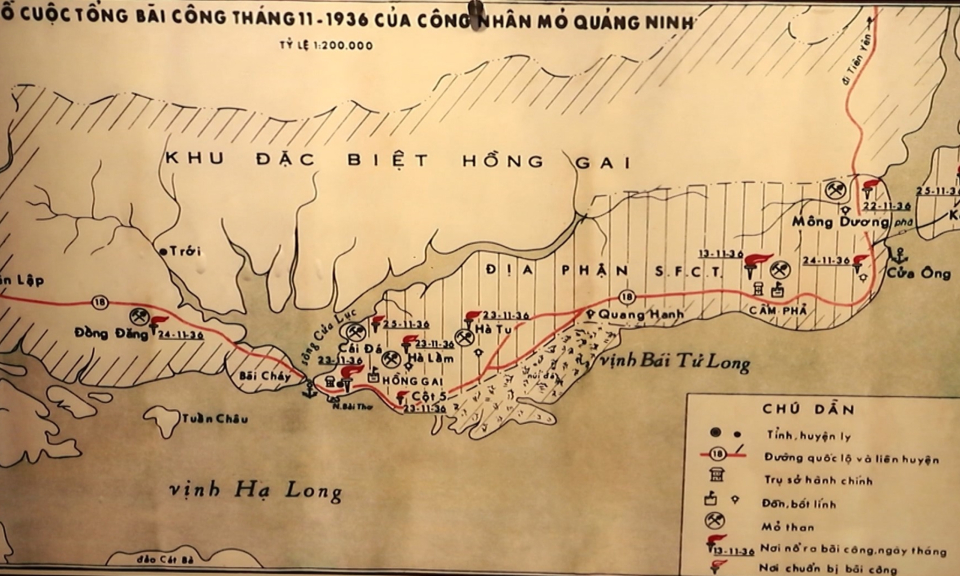 Ồ CUỘC TỔNG BÃI CÔNG THÁNG 11-1936 CỦA CÔNG NHÂN MỎ QUẢNG NINH
TỶ LỆ 1:200.000
đi Tiên Yên
KHU ĐẶC BIỆT HỒNG GAI
25-11-36
22-11-36
Mông Dương
phà
Trới
13-11-36
24-11-36
ĐỊA PHẬN S.F.C.T.
Cửa Ông
ăn Lập
18
18
Quang Hanh
CẨM PHẢ
Đồng Đăng
24-11-36
sông Cửa Lục
25-11-36
23-11-36
Hà Tu
Cái Đá
23-11-36
Hà Lầm
23-11-36
Bãi Cháy
HỒNG GAI
núi đá
vịnh Bái Tử Long
N. Bài Thơ
Cột 5
23-11-36
Tuần Châu
vịnh Hạ Long
đảo Cát Bà
CHÚ DẪN
Tỉnh, huyện lỵ
18
Đường quốc lộ và liên huyện
Trụ sở hành chính
Đồn, bốt lính
Mỏ than
13-11-36
Nơi nổ ra bãi công, ngày tháng
Nơi chuẩn bị bãi công